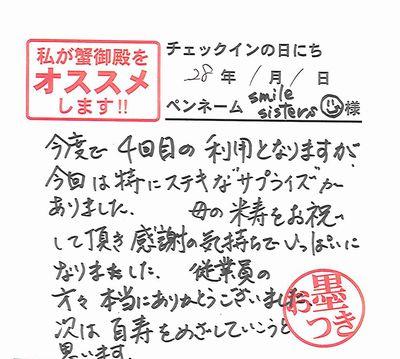 私が蟹御殿を
オススメ
します!!
チェックインの日にち
28年 1月 1日
ペンネーム smile sisters 様
今度で4回目の利用となりますが
今回は特にステキな"サプライズ"が
ありました. 母の米寿をお祝い
して頂き感謝の気持ちでいっぱいに
なりました. 従業員の
方々本当にありがとうございました.
次は百寿をめざしていこうと
思います.
墨
おつき